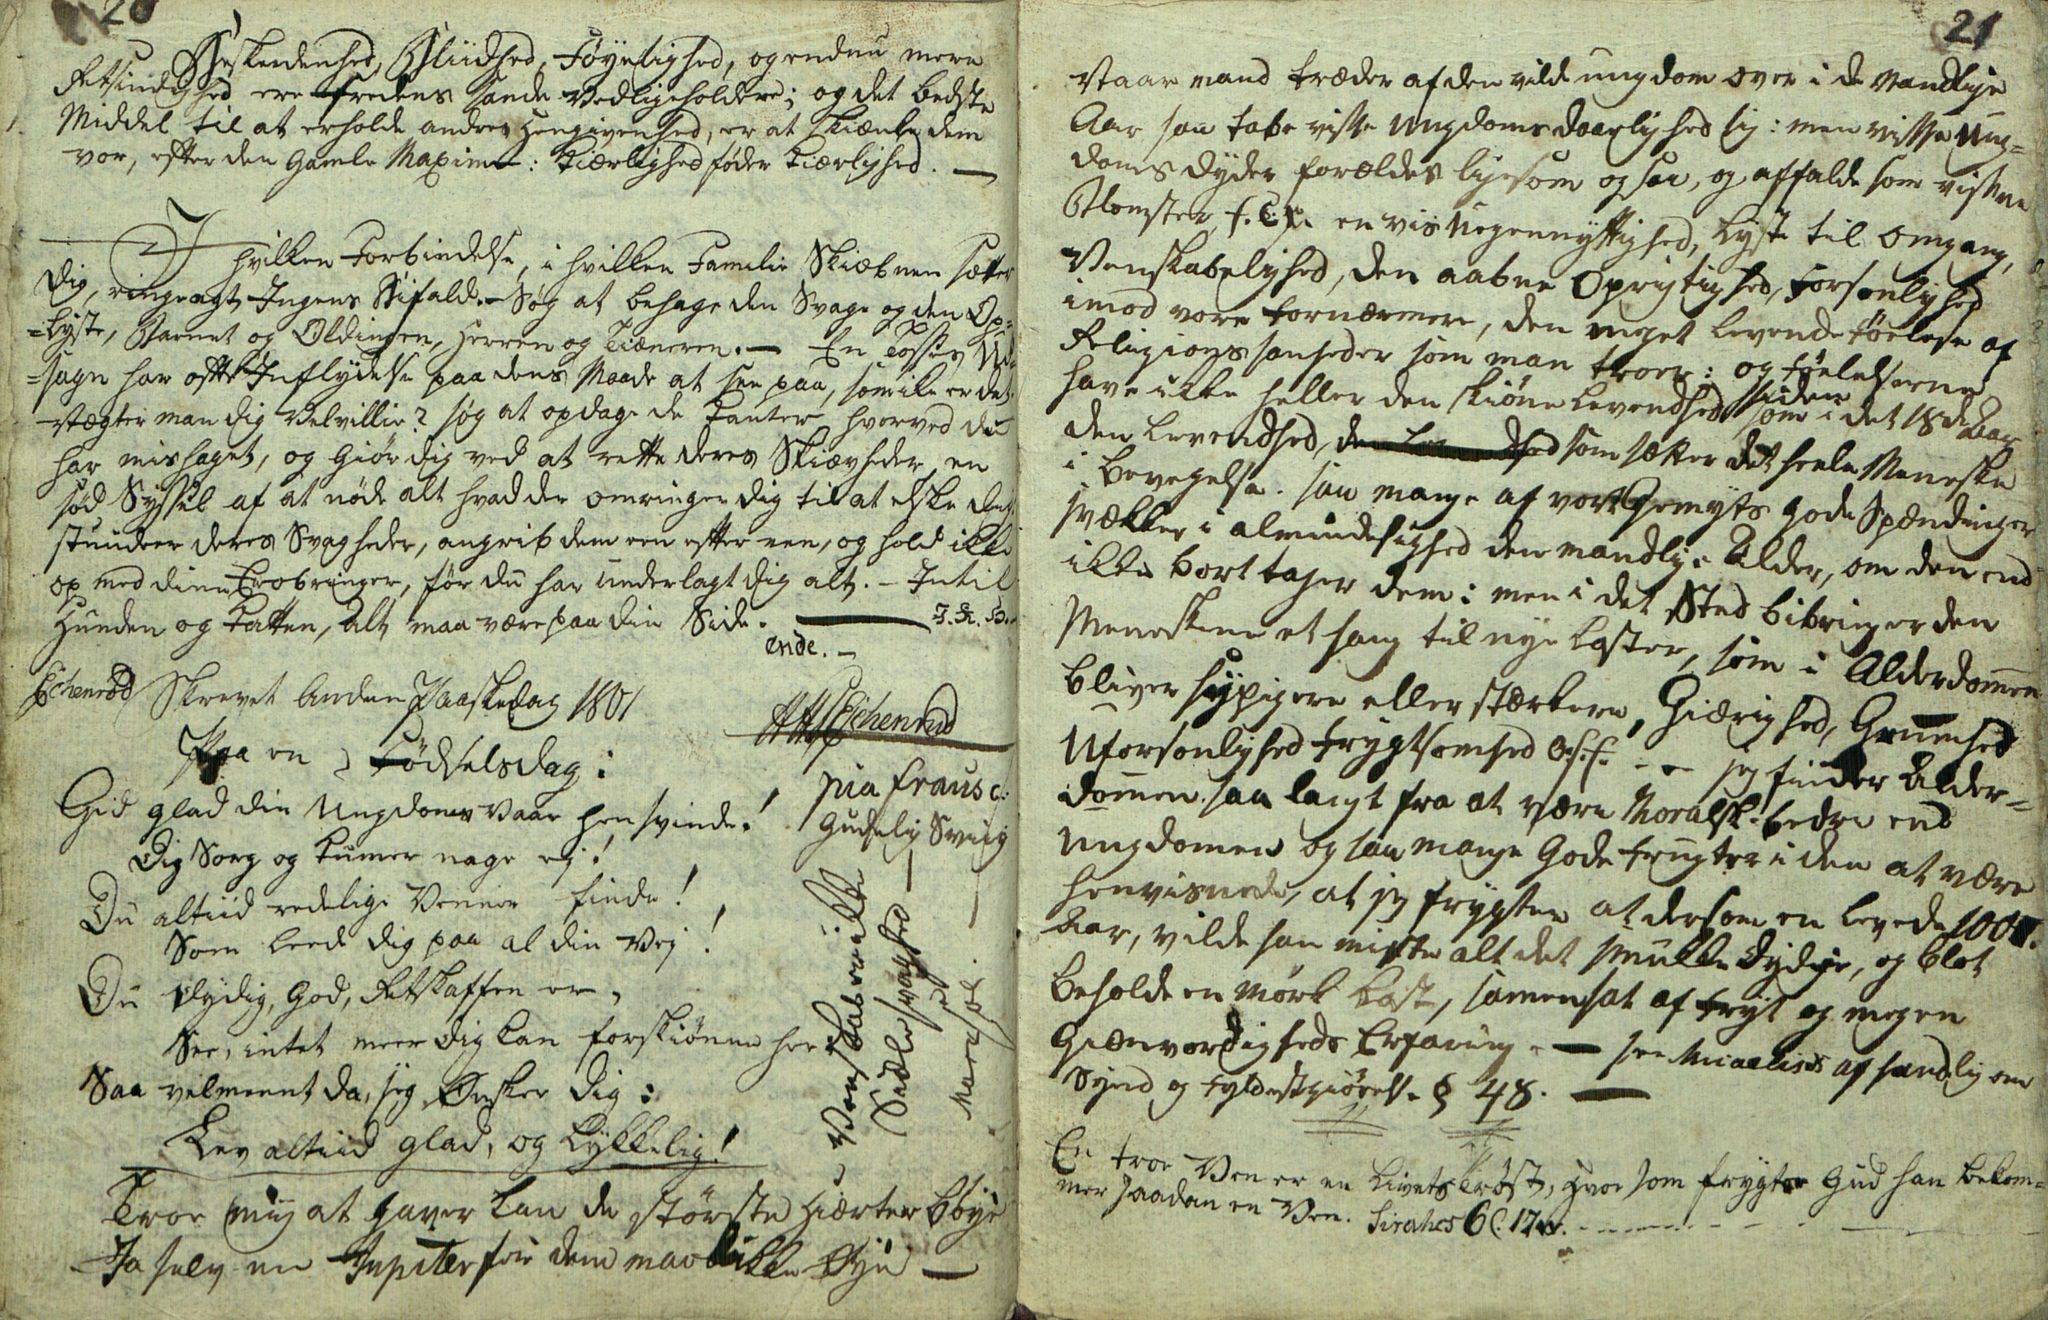 20
Beskeedenhed, Bliidhed, Føyelighed, og endnu mere
Retsindighed ere Fredens sande Vedligeholdere; og det bedste
Middel til at erholde andres Hengivenhed, er at skiænke dem
vor, efter den Gamle Maxime: Kiærlighed føder Kiærlighed. —
I hvilken Forbindelse, i hvilken Familie Skiæbnen sætter
dig, ringeagt Ingens Bifald. - Søg at behage den Svage og den Op=
=lyste, Barnet og Oldingen, Herren og Tiæneren. — En Tosses Ud=
=sagn har ofte Indflydelse paa dens Maade at see paa, som ike er det.
Nægter man dig Velvillie? søg at opdage de Kanter hvorved du
har mishaget, og giør dig ved at rette deres Skiævheder, en
sød Syssel af at nøde alt hvad der omringer dig til at elske dig
studeer deres Svagheder, angrib dem een efter een, og hold ikke
op med dine Erobringer, før du har underlagt dig alt. - Indtil
Hunden og Katten, alt maa være paa din Side. —
ende. —
Echenrod Skrevet Anden Paaskedag 1801
Echenrod
Paa en Fødselsdag:
Gid glad din Ungdoms Vaar hensvinde!
Dig Sorg og Kumer nage ej!
Du altiid redelige Venner finde!
Som leede dig paa al din Vej!
Du dydig, God, Retskaffen er,
See, intet meer dig kan forskiønne her.
Saa velmeent da, jeg Ønsker dig:
Lev altiid glad, og lykkelig!
Troe mig at Gaver kan de største Hierter bøye
Ja selv en Jupiter for dem maae lukke Øye —
pia fraus c:
Gudelig Sviig
Venskab
Siæle svaghed
21
Naar mand træder af den vilde ungdom over i de Mandlige
Aar saa tabe visse Ungdoms daarlighed sig: men visse Ung=
doms dyder forældes ligesom ogsaa, og affalde som visne
Blomster, f. Ex. en vis Uegennyttighed, Lyst til Omgang,
Venskabelighed, den aabne Oprigtighed, Forsonlighed
imod vore Fornærmere, den meget levende Føelese af
Religions sanheder som man troer: og Føelelserne
have ikke heller den skiøne Levendhed siden som i det 18de Aar
den Levendhed, som sætter det heele Meneske
i Bevegelse. saa mange af vort Gemyts gode Spændinger
svækker i almindelighed den mandlige Alder, om den end
ikke bort tager dem: men i det Sted bibringer den
Meneskene et hang til nye Laster, som i Alderdommen
bliver hyppigere eller stærkere, Giærighed, Grumhed
Uforsonlighed Frygtsomhed o.s.f. - - jeg finder Alder=
dommen saa langt fra at være Moralsk bedre end
Ungdomen og saa mange Gode Frugter i den at være
henvisnede, at jeg frygter at dersom en levede 1000
Aar, vilde han miste alt det smukke dydige, og blot
beholde en mørk Last, samensat af Frygt og megen
Gienvordigheds Erfaring. — see Micaelises afhandlig om
Synd og Fyldestgiørelse § 48. —
En troe Ven er en Livets Trøst, hvo som frygter Gud han bekom=
mer saadan en Ven. Sirahcs 6 C. 17 v.